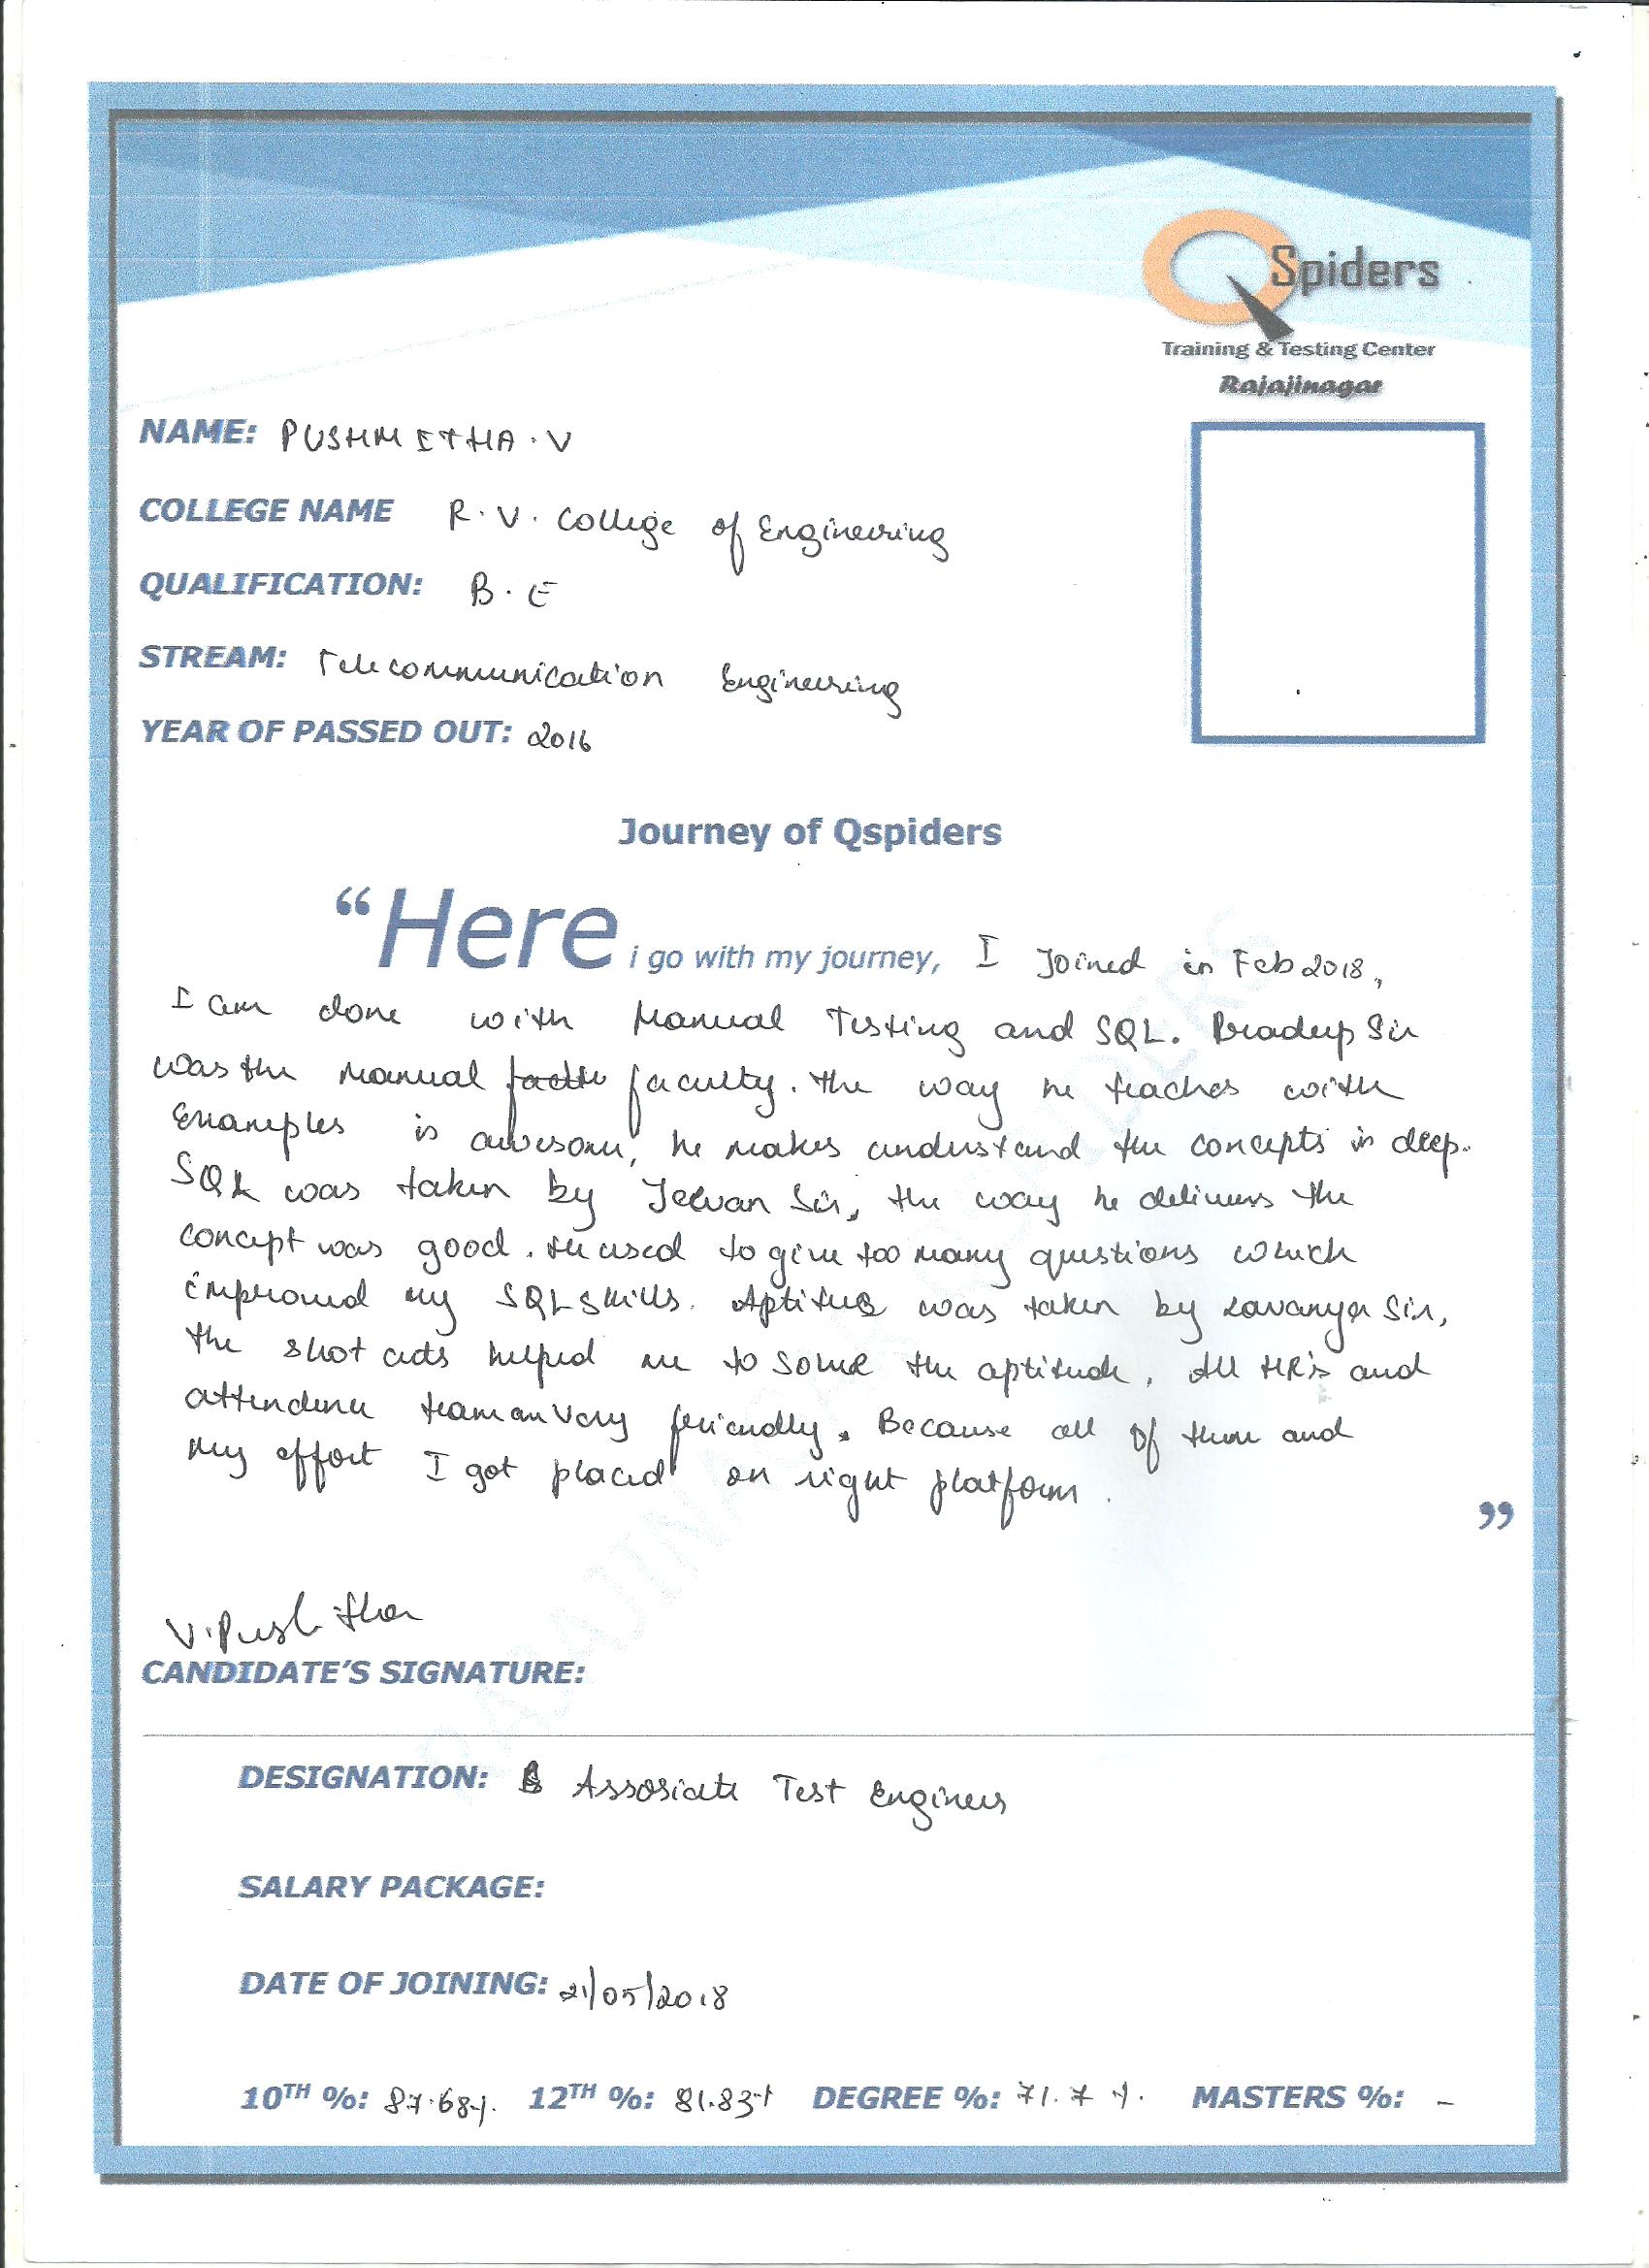 Spiders
Training & Testing Center
Rajajinagar
NAME: PUSHMITHA.V
COLLEGE NAME R.V. College of Engineering
QUALIFICATION: B.E
STREAM: Telecommunication Engineering
YEAR OF PASSED OUT: 2016
Journey of Qspiders
“Here i go with my journey, I Joined in Feb 2018,
I am done with Manual Testing and SQL. Pradeep Sir
was the manual faculty. The way he teaches with
Examples is awesome, he makes understand the concepts in deep.
SQL was taken by Jeevan Sir, the way he delivers the
concept was good. He used to give too many questions which
improved my SQL skills. Aptitude was taken by Lavanya Sir,
the shot cuts helped me to solve the aptitude. All HR's and
attendence team are very friendly. Because all of them and
my effort I got placed on right platform.
”
V.Pushmitha
CANDIDATE’S SIGNATURE:
DESIGNATION: Assosiate Test Engineer
SALARY PACKAGE:
DATE OF JOINING: 21/05/2018
10TH %: 87.68% 12TH %: 81.83% DEGREE %: 71.7 %. MASTERS %: -